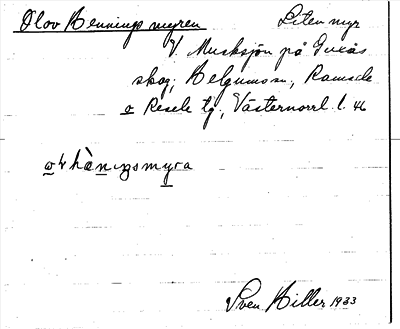 Olov Hennings myren Liten myr
V. Musksjön på Guxås
skog; Helgumssn, Ramsele
o Resele tg, Västernorrl. l.
o4hæ̀niŋsmyra
Sven Hiller 1933